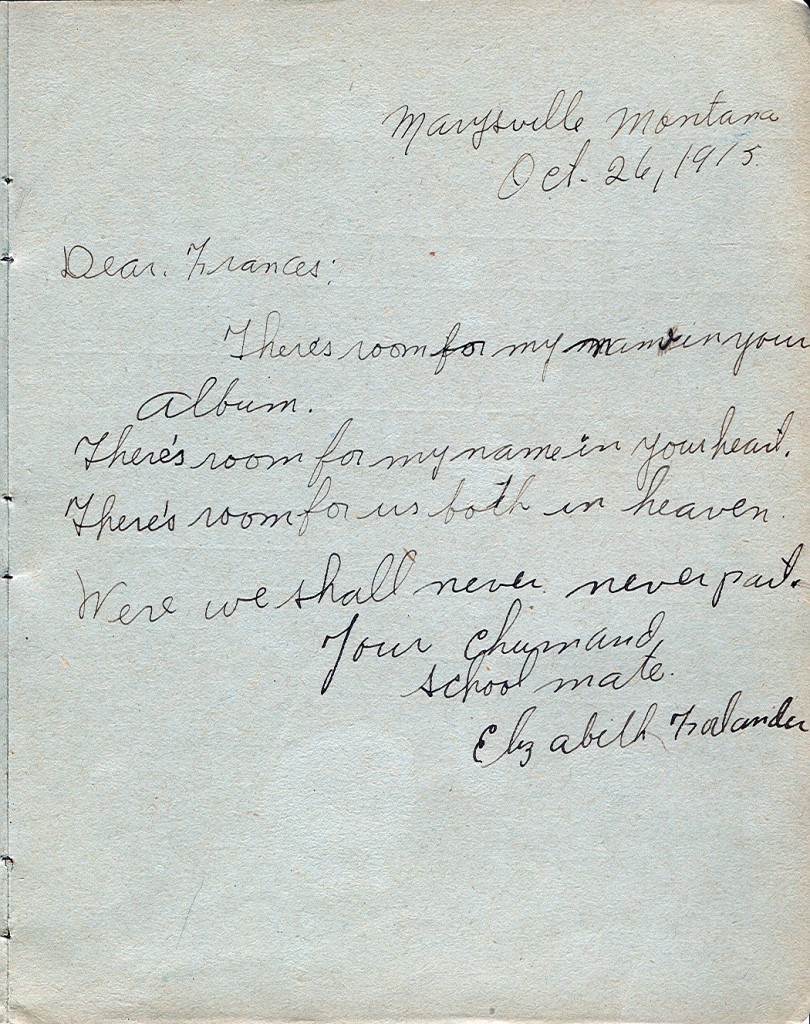 Marysville Montana
Oct. 26, 1915.
Dear. Frances:
There's room for my name in your
album.
There's room for my name in your heart.
There's room for us both in heaven.
Were we shall never never part.
Your chum and
school mate.
Elizabeth